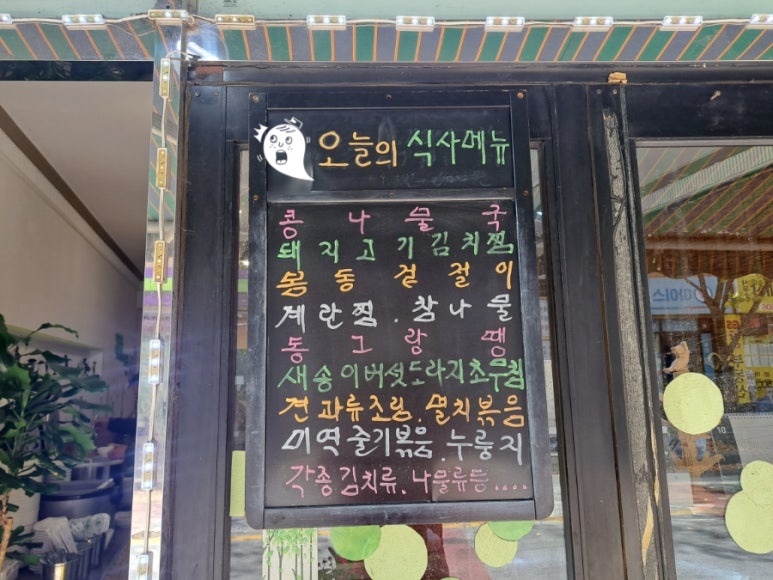 오늘의 식사메뉴
콩나물국
돼지고기김치찜
봄동겉절이
계란찜. 참나물
동그랑땡
새송이버섯도라지초무침
견과류조림. 멸치볶음
미역줄기볶음. 누룽지
각종김치류. 나물류등....